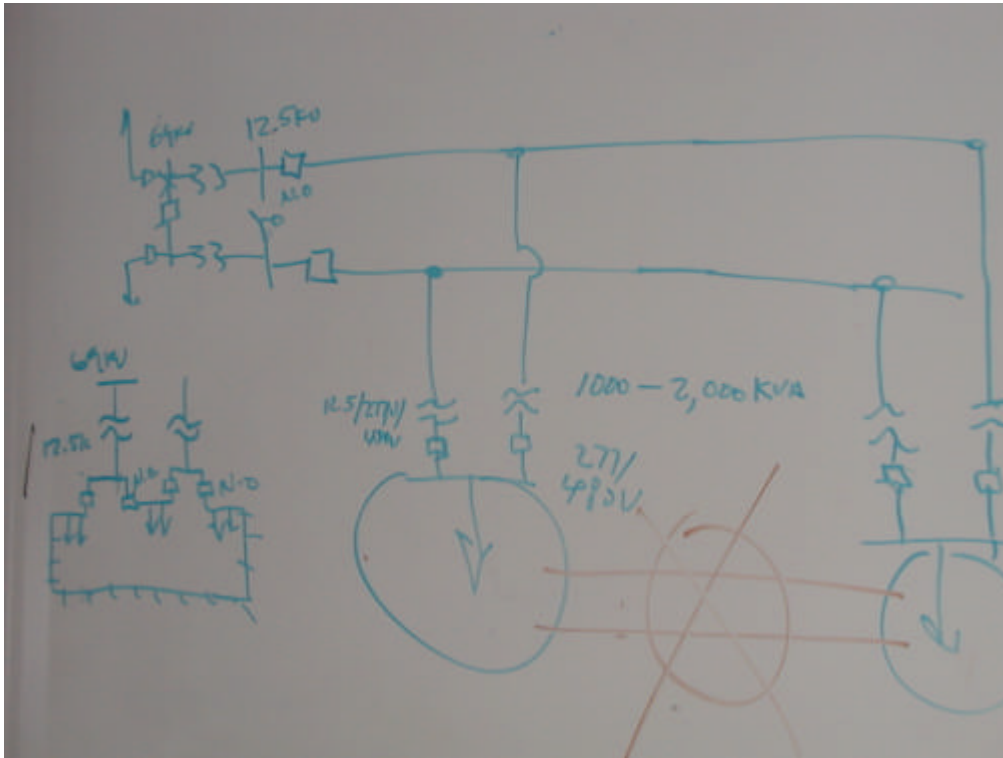 69KV
12.5KV
N.O
69KV
12.5K
N.O
N-O
1000 - 2,000 KVA
277/
480V